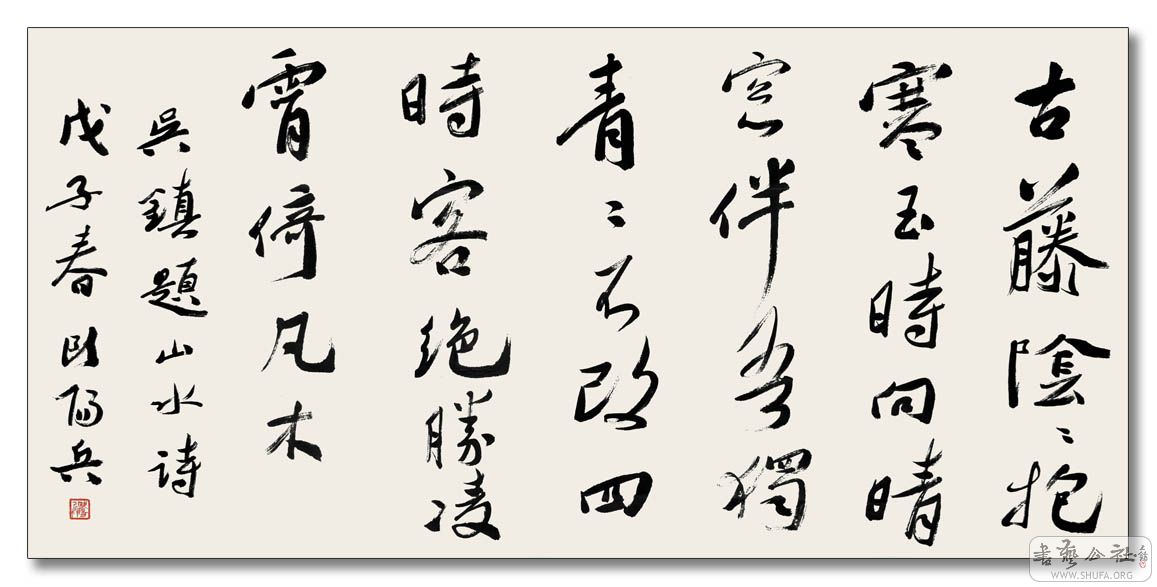 古藤陰〻抱
寒玉時向晴
窓伴吾獨
青〻不改四
時客絶勝凌
霄倚凡木
吳鎮題山水詩
戊子春欧陽兵
書藝公社
WWW.SHUFA.ORG